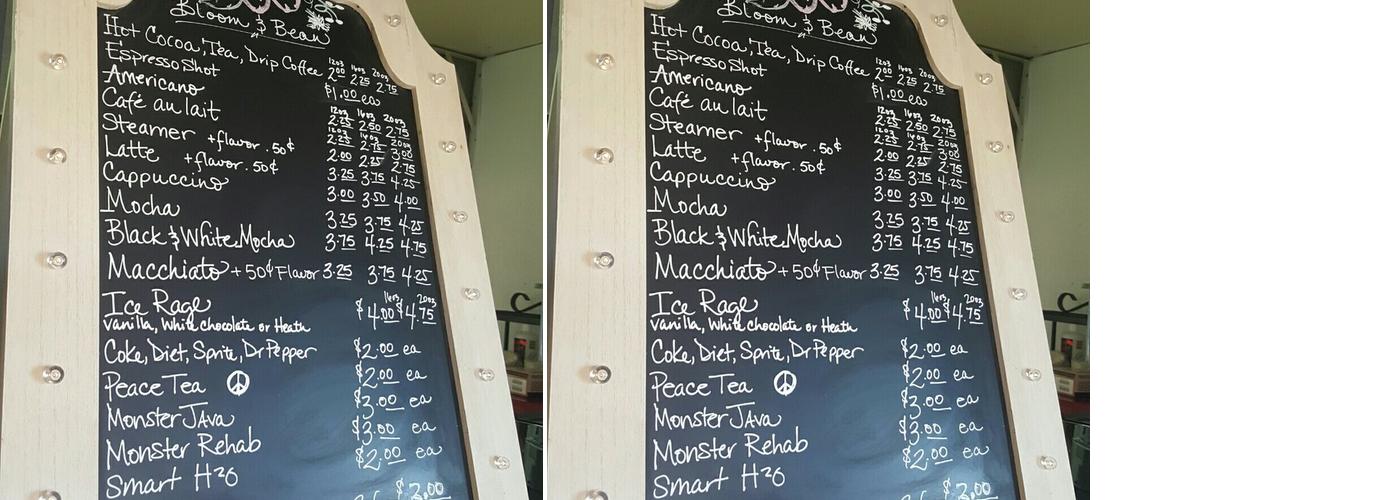 Bloom & Bean
Hot Cocoa, Tea, Drip Coffee 12oz 2.00 16oz 2.25 20oz 2.75
Espresso Shot $1.00 ea
Americano 12oz 2.25 16oz 2.50 20oz 2.75
Café au lait 12oz 2.25 16oz 2.75 20oz 3.00
Steamer +flavor .50¢ 2.00 2.25 2.75
Latte +flavor .50¢ 3.25 3.75 4.25
Cappuccino 3.00 3.50 4.00
Mocha 3.25 3.75 4.25
Black & White Mocha 3.75 4.25 4.75
Macchiato + 50¢ Flavor 3.25 3.75 4.25
Ice Rage 16oz $4.00 20oz $4.75
vanilla, white chocolate or Heath
Coke, Diet, Sprite, Dr Pepper $2.00 ea
Peace Tea $2.00 ea
Monster JAva $3.00 ea
Monster Rehab $3.00 ea
Smart H2O $2.00 ea
$3.00
Bloom & Bean
Hot Cocoa, Tea, Drip Coffee 12oz 2.00 16oz 2.25 20oz 2.75
Espresso Shot $1.00 ea
Americano 12oz 2.25 16oz 2.50 20oz 2.75
Café au lait 12oz 2.25 16oz 2.75 20oz 3.00
Steamer +flavor .50¢ 2.00 2.25 2.75
Latte +flavor .50¢ 3.25 3.75 4.25
Cappuccino 3.00 3.50 4.00
Mocha 3.25 3.75 4.25
Black & White Mocha 3.75 4.25 4.75
Macchiato + 50¢ Flavor 3.25 3.75 4.25
Ice Rage 16oz $4.00 20oz $4.75
vanilla, white chocolate or Heath
Coke, Diet, Sprite, Dr Pepper $2.00 ea
Peace Tea $2.00 ea
Monster JAva $3.00 ea
Monster Rehab $3.00 ea
Smart H2O $2.00 ea
$3.00